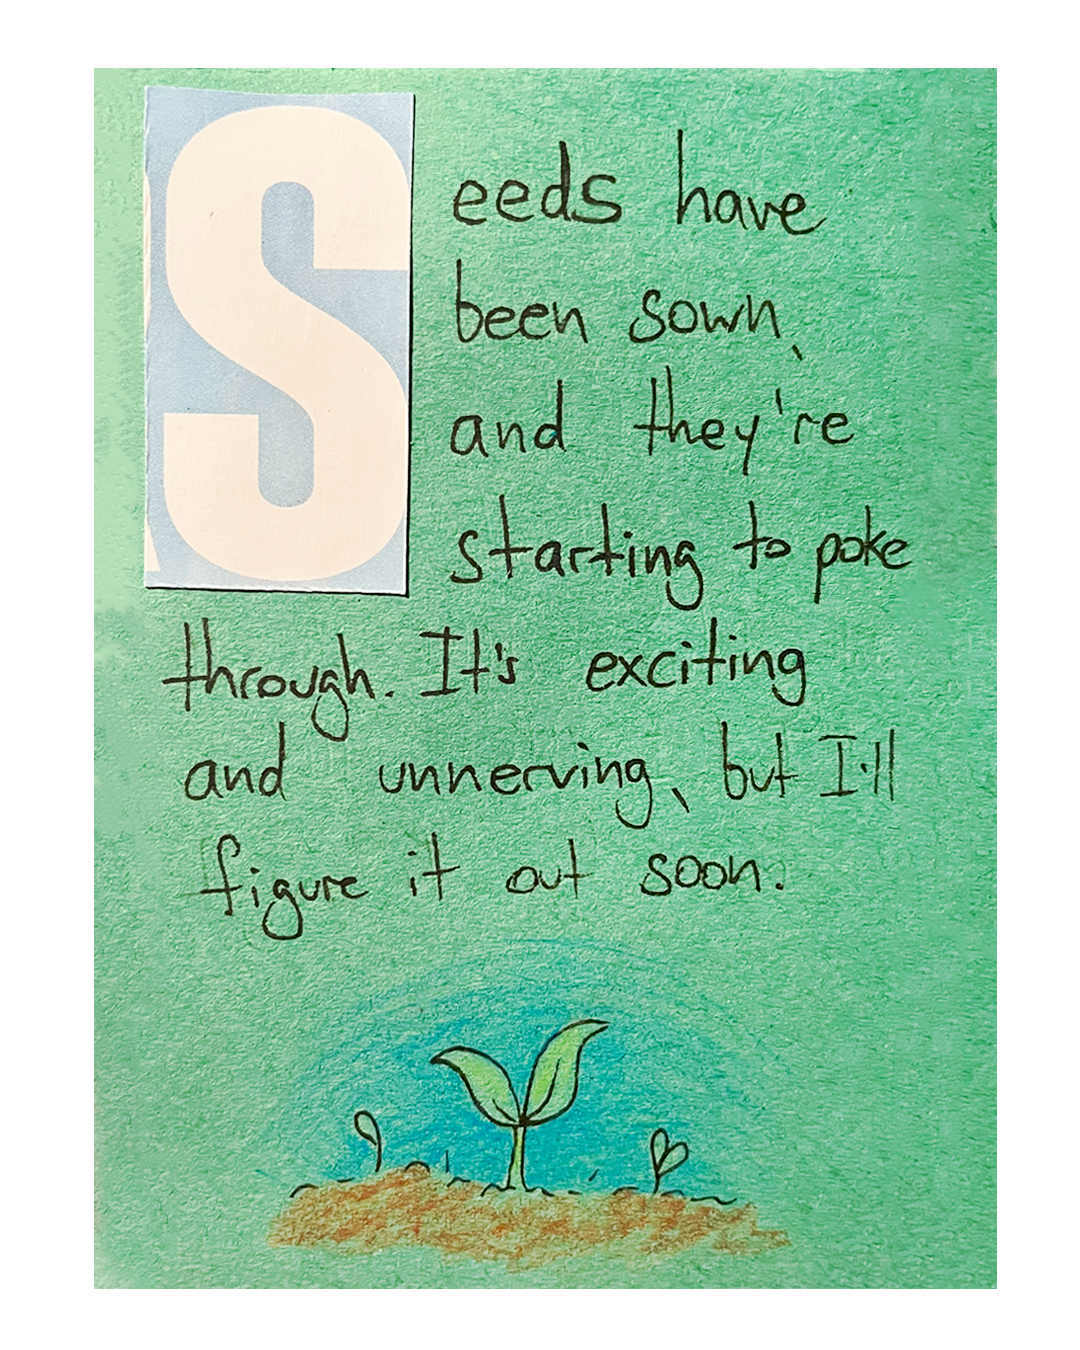 Seeds have
been sown,
and they're
starting to poke
through. It's exciting
and unnerving, but I'll
figure it out soon.